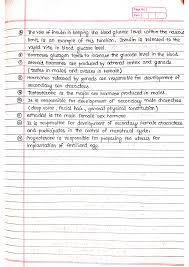 The role of Insulin in keeping the blood glucose level within the normal
limits is an example of this function. Insulin is released to the
rapid rise in blood glucose level
Hormones glucagon tends to increase the glucose level in the blood
Several hormones are produced by adrenal cortex and gonads
(testes in males and ovaries in female)
Hormones released by gonads are responsible for development of
secondary sex characters
Testosterone is the major sex hormone produced in males.
It is responsible for development of secondary male characters
(deep voice, facial hair, general physical constitution)
Estradiol is the sex hormone
It is responsible for development of secondary female characters
and participates in the control of menstrual cycle.
Progesterone is responsible for preparing the uterus for
implantation of fertilized egg